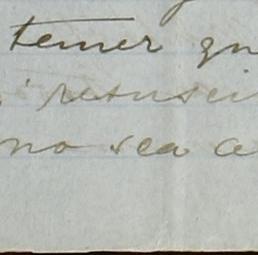 temer qu
resusci
no sea a